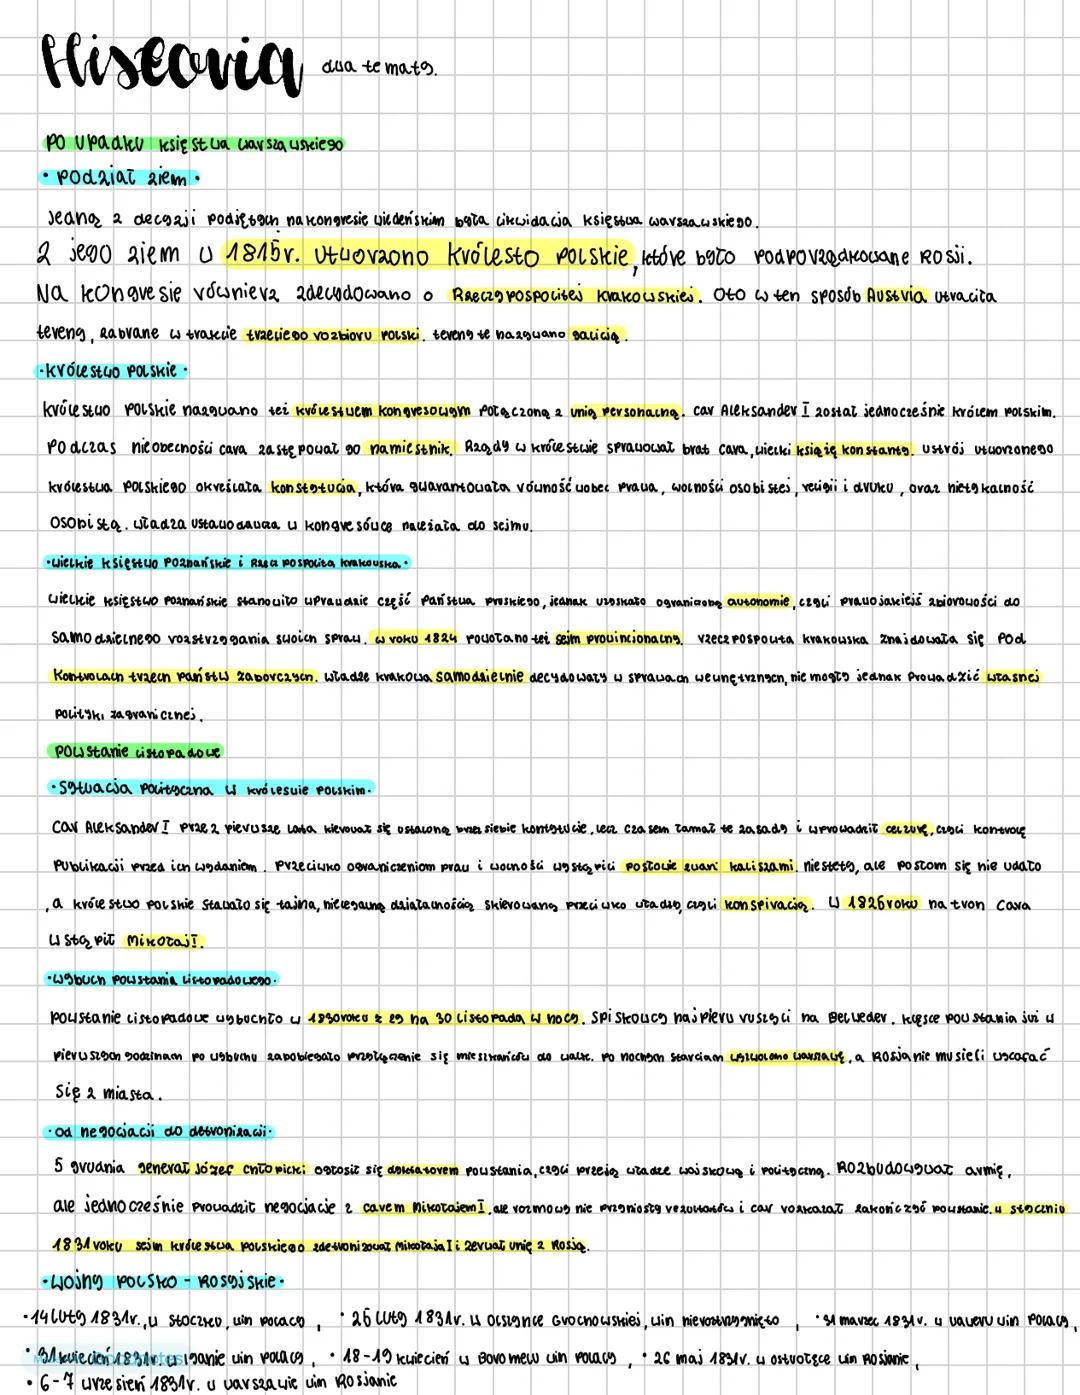 Historia dwa tematy.
PO UPADKU księstwa warszawskiego
• Podział ziem •
Jedną z decyzji podjętych na kongresie wiedeńskim była likwidacja księstwa warszawskiego.
Z jego ziem w 1815r. utworzono Królesto Polskie, które było podporządkowane Rosji.
Na kongresie również zdecydowano o Rzeczypospolitej Krakowskiej. Oto w ten sposób Austria utraciła
tereny, zabrane w trakcie trzeciego rozbioru Polski. tereny te nazywano galicją.
• Królestwo Polskie •
Królestwo Polskie nazywano też królestwem kongresowym połączoną z unią personalną. car Aleksander I został jednocześnie królem polskim.
Podczas nieobecności cara zastępował go namiestnik. Rządy w królestwie sprawował brat cara, wielki książę konstanty. ustrój utworzonego
królestwa Polskiego określała konstytucja, która gwarantowała równość wobec prawa, wolności osobistej, religii i druku, oraz nietykalność
osobistą. władza ustawodawcza w kongresówce należała do sejmu.
• wielkie księstwo Poznańskie i Rzecz pospolita krakowska •
wielkie księstwo poznańskie stanowiło wprawdzie część państwa pruskiego, jednak uzyskało ograniczoną autonomie, czyli prawo jakiejś zbiorowości do
samodzielnego rozstrzygania swoich spraw. w roku 1824 powołano też sejm prowincjonalny. rzecz pospolita krakowska znajdowała się pod
kontrolach trzech państw zaborczych. władze krakowa samodzielnie decydowały w sprawach wewnętrznych, nie mogły jednak prowadzić własnej
polityki zagranicznej.
Powstanie listopadowe
• Sytuacja polityczna w króleswie polskim •
Car Aleksander I prze z pierwsze lata kierował się ustaloną przez siebie kontytucie, lecz czasem łamał te zasady i wprowadził cenzurę, czyli kontrolę
publikacji przed ich wydaniem. Przeciwko ograniczeniom praw i wolności wystąpili posłowie zwani kaliszami. niestety, ale posłom się nie udało
, a królestwo Polskie stawało się tajną, nielegalną działalnością skierowaną przeciwko władzy, czyli konspiracją. W 1826 roku na tron cara
wstąpił Mikołaj I.
• wybuch powstania listopadowego •
Powstanie listopadowe wybuchło w 1830roku z 29 na 30 Listopada w nocy. Spiskowcy najpierw ruszyli na Belweder. klęsce powstania już w
pierwszych godzinach po wybuchu zapobiegało przyłączenie się mieszkańców do walk. Po nocnych starciach wyzwolono warszawę, a Rosjanie musieli wycofać
się z miasta.
• od negocjacji do detronizacji •
5 grudnia generał Józef Chłopicki ogłosił się dyktatorem powstania, czyli przejął władze wojskową i polityczną. Rozbudowywał armię,
ale jednocześnie prowadził negocjacje z carem Mikołajem I, ale rozmowy nie przyniosły rezultatów i car rozkazał zakończyć powstanie. w styczniu
1831 roku sejm królestwa polskiego zdetronizował Mikołaja I i zerwał unię z Rosją.
• Wojny Polsko - Rosyjskie •
• 14 luty 1831r., w Stoczku, win polacy, • 25 luty 1831r. w Olszynce Grochowskiej, win nierozstrzygnięto, • 31 marzec 1831r. w waweru win polacy,
• kwiecień 1831r. w iganie win polacy, • 18-19 kwiecień w Boromelu win polacy, • 26 maj 1831r. w ostrołęce win Rosjanie,
• 6-7 wrzesień 1831r. w warszawie win Rosjanie